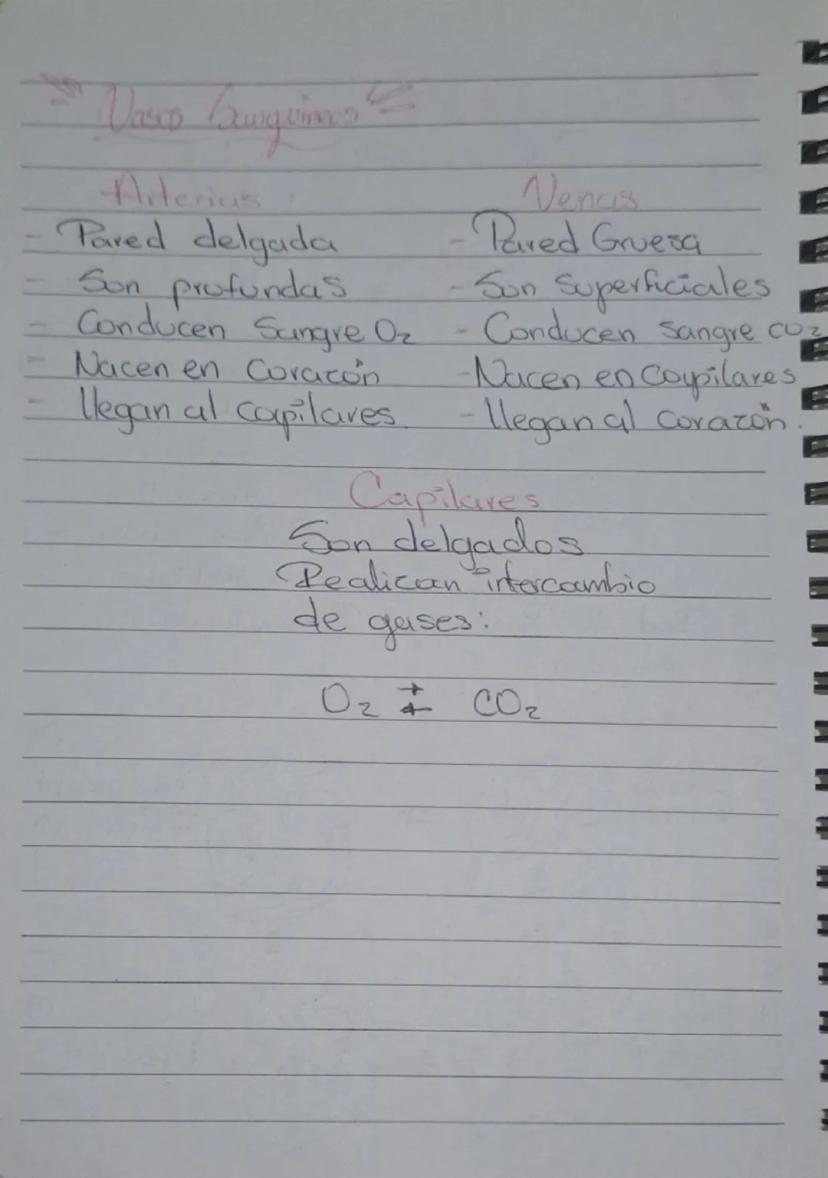 Vasos Sanguineos
Arterias
Venas
- Pared delgada
- Pared Gruesa
- Son profundas
- Son Superficiales
- Conducen Sangre O₂
- Conducen sangre CO₂
- Nacen en Corazón
- Nacen en Capilares
- llegan al capilares.
- llegan al corazón.
Capilares
Son delgados
Realizan intercambio
de gases:
O₂ ⇄ CO₂